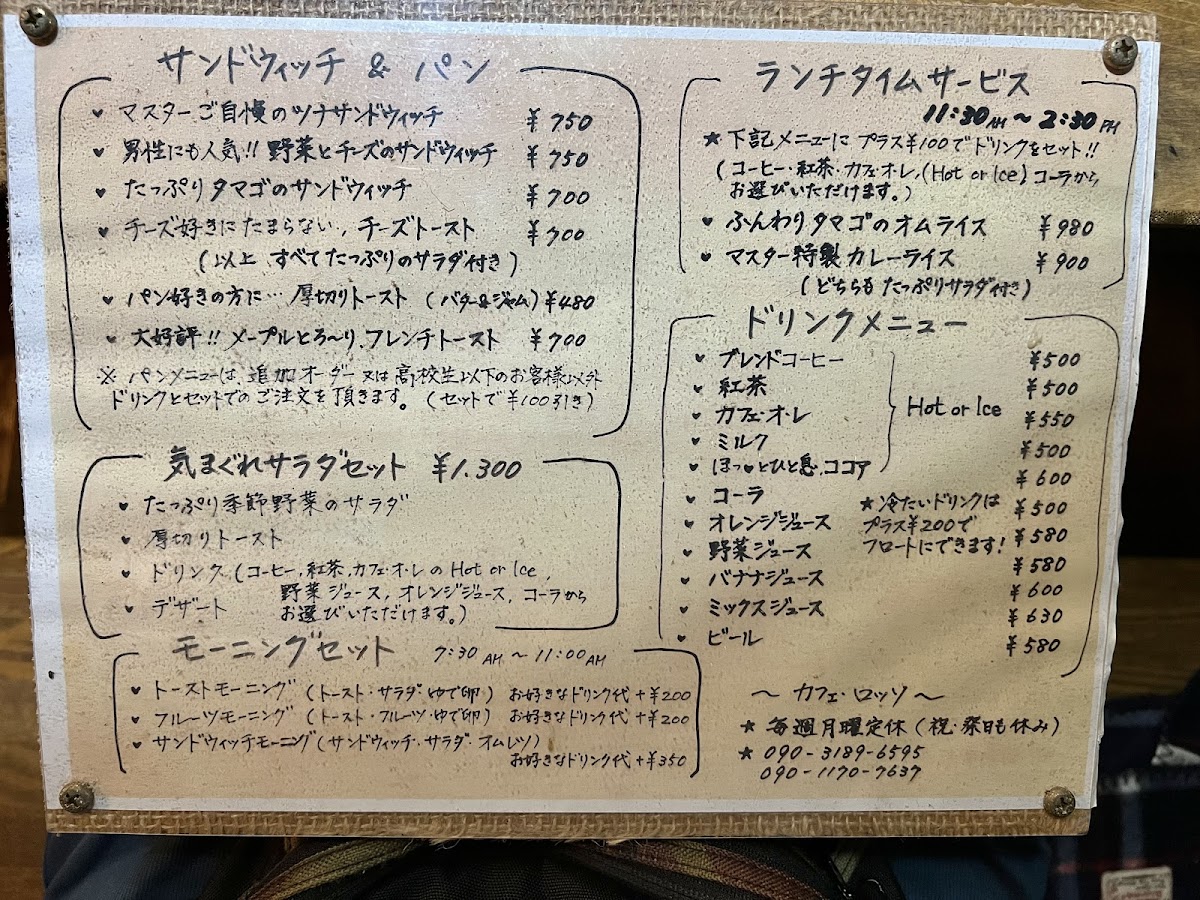 サンドウィッチ & パン
♥ マスターご自慢のツナサンドウィッチ ¥750
♥ 男性にも人気!! 野菜とチーズのサンドウィッチ ¥750
♥ たっぷりタマゴのサンドウィッチ ¥700
♥ チーズ好きにたまらない, チーズトースト ¥700
(以上 すべてたっぷりのサラダ付き)
♥ パン好きの方に… 厚切りトースト (バター&ジャム) ¥480
♥ 大好評!! メープルとろ〜り、フレンチトースト ¥700
※ パンメニューは、追加オーダー又は高校生以下のお客様以外
ドリンクとセットでのご注文を頂きます。(セットで¥100引き)
気まぐれサラダセット ¥1.300
♥ たっぷり季節野菜のサラダ
♥ 厚切りトースト
♥ ドリンク (コーヒー, 紅茶, カフェ・オ・レの Hot or Ice,
野菜ジュース, オレンジジュース, コーラから
♥ デザート お選びいただけます。)
モーニングセット 7:30 AM 〜 11:00 AM
♥ トーストモーニング (トースト・サラダ・ゆで卵) お好きなドリンク代 +¥200
♥ フルーツモーニング (トースト・フルーツ・ゆで卵) お好きなドリンク代 +¥200
♥ サンドウィッチモーニング (サンドウィッチ・サラダ・オムレツ)
お好きなドリンク代 +¥350
ランチタイムサービス
11:30 AM 〜 2:30 PM
★ 下記メニューに プラス¥100でドリンクをセット!!
(コーヒー・紅茶・カフェ・オ・レ, (Hot or Ice) コーラから
お選びいただけます。)
♥ ふんわりタマゴのオムライス ¥980
♥ マスター特製カレーライス ¥900
(どちらも たっぷりサラダ付き)
ドリンクメニュー
♥ ブレンドコーヒー ¥500
♥ 紅茶 ¥500
♥ カフェ・オ・レ Hot or Ice ¥550
♥ ミルク ¥500
♥ ほっ♥とひと息、ココア ¥600
♥ コーラ ¥500
♥ オレンジジュース ¥580
♥ 野菜ジュース ¥580
♥ バナナジュース ¥600
♥ ミックスジュース ¥630
♥ ビール ¥580
★ 冷たいドリンクは
プラス¥200で
フロートにできます!
〜 カフェ・ロッソ 〜
★ 毎週月曜定休 (祝・祭日も休み)
★ 090-3189-6595
090-1170-7637